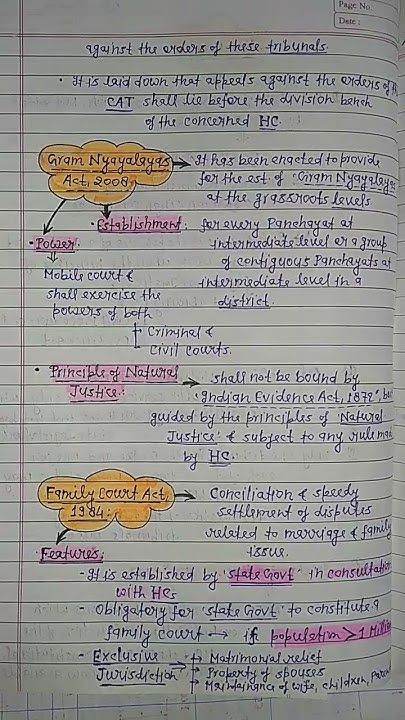 Page No.
Date :
against the orders of these tribunals.
• It is laid down that appeals against the orders of
CAT shall lie before the division bench
of the concerned HC.
Gram Nyayalayas → It has been enacted to provide
Act, 2008 for the est. of 'Gram Nyayalayas
at the grassroots levels
• Establishment: for every Panchayat at
• Power: intermediate level or a group
⇓ of contiguous Panchayats at
Mobile court & intermediate level in a
shall exercise the district.
powers of both
Criminal &
Civil courts.
• Principle of Natural → shall not be bound by
Justice: 'Indian Evidence Act, 1872', but
guided by the principles of 'Natural
Justice' & subject to any rule
by HC.
Family Court Act, → Conciliation & speedy
1984: settlement of disputes
related to marriage & family
issue.
• Features:
- It is established by 'State Govt' in consultation
with HCs
- Obligatory for 'State Govt' to constitute a
family court → if population > 1 Million
- Exclusive → Matrimonial relief
Jurisdiction → Property of spouses
→ of wife, children,